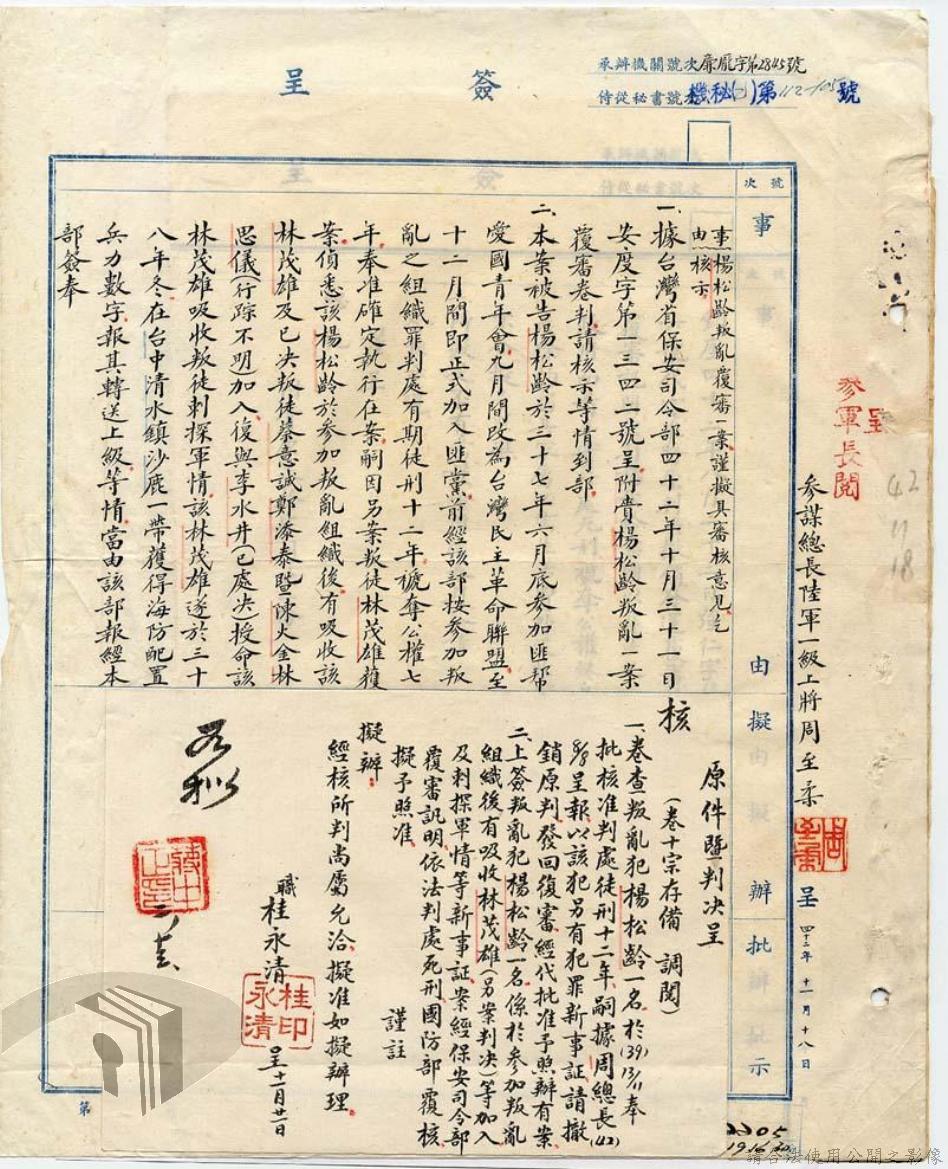 簽呈
承辦機關號次廉龐字第2845號
侍從秘書號次機秘(二)第112-105號
呈
參軍長閱
42
11
18
參謀總長陸軍一級上將周至柔
呈
四十二年十一月十八日
號次
事由擬辦批示
事由
楊松齡叛亂覆審一案謹擬具審核意見乞
核示
一、據台灣省保安司令部四十二年十月三十一日
安度字第一三四二號呈附賫楊松齡叛亂一案
覆審卷判請核示等情到部
二、本案被告楊松齡於三十七年六月底參加匪幫
愛國青年會九月間改為台灣民主革命聯盟至
十二月間即正式加入匪黨前經該部按參加叛
亂之組織罪判處有期徒刑十二年褫奪公權七
年奉准確定執行在案嗣因另案叛徒林茂雄獲
案偵悉該楊松齡於參加叛亂組織後有吸收該
林茂雄及已決叛徒蔡意誠鄭添泰暨陳火金林
思儀(行踪不明)加入復與李水井(已處決)授命該
林茂雄吸收叛徒刺探軍情該林茂雄遂於三十
八年冬在台中清水鎮沙鹿一帶獲得海防配置
兵力數字報其轉送上級等情當由該部報經本
部簽奉
原件暨判決呈
核
(卷十宗存備調閱)
一、卷查叛亂犯楊松齡一名於(39)13/11奉
批核准判處徒刑十二年嗣據周總長(42)
8/8呈報以該犯另有犯罪新事証請撤
銷原判發回復審經代批准予照辦有案
二、上簽叛亂犯楊松齡一名係於參加叛亂
組織後有吸收林茂雄(另案判決)等加入
及刺探軍情等新事証案經保安司令部
覆審訊明依法判處死刑國防部覆核
擬予照准
謹註
擬辦
經核所判尚屬允洽擬准如擬辦理
職桂永清
桂永清印
呈十一月廿一日
如擬
蔣中正印
第
2205
請合法使用公開之影像